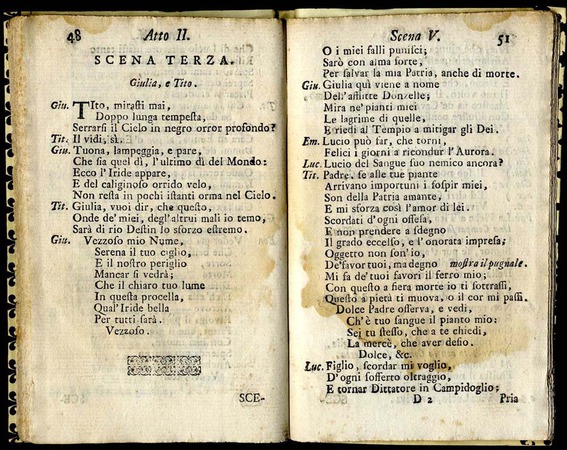 48 Atto II.
SCENA TERZA.
Giulia, e Tito.
Giu. TIto, mirasti mai,
Doppo lunga tempesta,
Serrarsi il Cielo in negro orror profondo?
Tit. Il vidi, sì.
Giu. Tuona, lampeggia, e pare,
Che sia quel dì, l'ultimo dì del Mondo:
Ecco l'Iride appare,
E del caliginoso orrido velo,
Non resta in pochi istanti orma nel Cielo.
Tit. Giulia, vuoi dir, che questo,
Onde de' miei, degl'altrui mali io temo,
Sarà di rio Destin lo sforzo estremo.
Giu. Vezzoso mio Nume,
Serena il tuo ciglio,
E il nostro periglio
Mancar si vedrà;
Che il chiaro tuo lume
In questa procella,
Qual'Iride bella
Per tutti sarà.
Vezzoso.
SCE-
Scena V. 51
O i miei falli punisci;
Sarò con alma forte,
Per salvar la mia Patria, anche di morte.
Giu. Giulia quì viene a nome
Dell'afflitte Donzelle;
Mira ne' pianti miei
Le lagrime di quelle,
E riedi al Tempio a mitigar gli Dei.
Em. Lucio può far, che torni,
Felici i giorni a ricondur l'Aurora.
Luc. Lucio del Sangue suo nemico ancora?
Tit. Padre, se alle tue piante
Arrivano importuni i sospir miei,
Son della Patria amante,
E mi sforza così l'amor di lei,
Scordati d'ogni offesa,
E non prendere a sdegno
Il grado eccelso, e l'onorata impresa;
Oggetto non son'io,
De' favor tuoi, ma degno mostra il pugnale.
Mi fa de' tuoi favori il ferro mio;
Con questo a fiera morte io ti sottrassi,
Questo a pietà ti muova, o il cor mi passi.
Dolce Padre osserva, e vedi,
Ch'è tuo sangue il pianto mio:
Sei tu stesso, che a te chiedi,
La mercè, che aver desio.
Dolce, &c.
Luc. Figlio, scordar mi voglio,
D'ogni sofferto oltraggio,
E tornar Dittatore in Campidoglio;
D 2 Pria